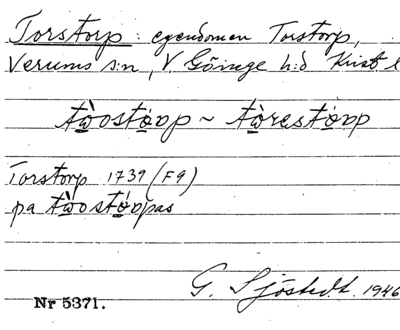 Torstorp : egendomen Torstorp,
Verums s:n, V. Göinge h:d Krist l
tẁostóop ~ tòrestóop
Torstorp 1739 (F9)
pa tẁostóopas
G. Sjöstedt. 1946
Nr 5371.